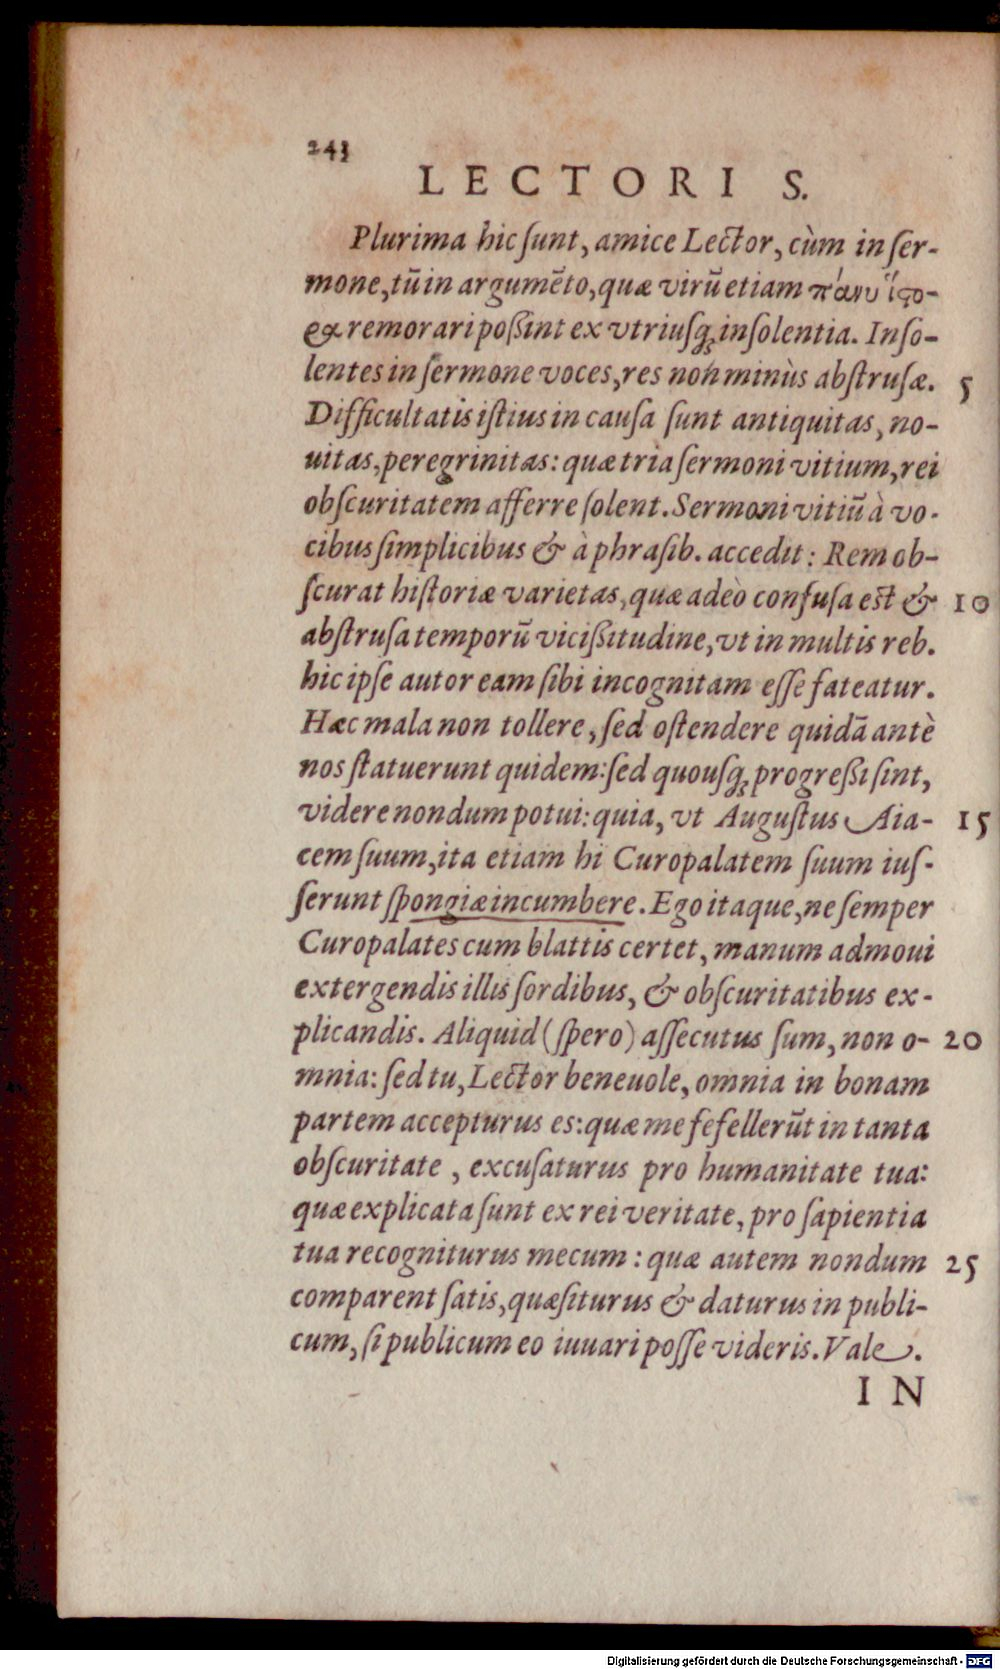 243
LECTORI S.
Plurima hic ſunt, amice Lector, cùm in ſer-
mone, tũ in argumẽto, quæ virũ etiam πάνυ ἵϛο-
ea remorari poßint ex vtriuſq; inſolentia. Inſo-
lentes in ſermone voces, res non minùs abſtruſæ. 5
Difficultatis iſtius in cauſa ſunt antiquitas, no-
uitas, peregrinitas: quæ tria ſermoni vitium, rei
obſcuritatem afferre ſolent. Sermoni vitiũ à vo-
cibus ſimplicibus & à phraſib. accedit: Rem ob-
ſcurat hiſtoriæ varietas, quæ adeò confuſa est & 10
abſtruſa temporũ vicißitudine, vt in multis reb.
hic ipſe autor eam ſibi incognitam eſſe fateatur.
Hæc mala non tollere, ſed oſtendere quidã antè
nos ſtatuerunt quidem: ſed quouſq; progreßi ſint,
videre nondum potui: quia, vt Auguſtus Aia- 15
cem ſuum, ita etiam hi Curopalatem ſuum iuſ-
ſerunt ſpongiæ incumbere. Ego itaque, ne ſemper
Curopalates cum blattis certet, manum admoui
extergendis illis ſordibus, & obſcuritatibus ex-
plicandis. Aliquid (ſpero) aſſecutus ſum, non o- 20
mnia: ſed tu, Lector beneuole, omnia in bonam
partem accepturus es: quæ me fefellerũt in tanta
obſcuritate, excuſaturus pro humanitate tua:
quæ explicata ſunt ex rei veritate, pro ſapientia
tua recogniturus mecum: quæ autem nondum 25
comparent ſatis, quæſiturus & daturus in publi-
cum, ſi publicum eo iuuari poſſe videris. Vale.
IN
Digitalisierung gefördert durch die Deutsche Forschungsgemeinschaft - DFG